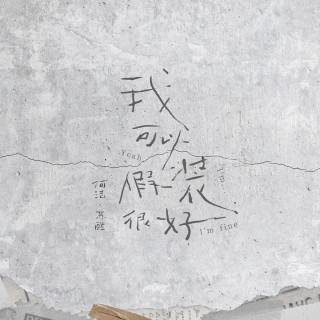 我
可以
Yeah
假装
很好
I'm fine
何洁